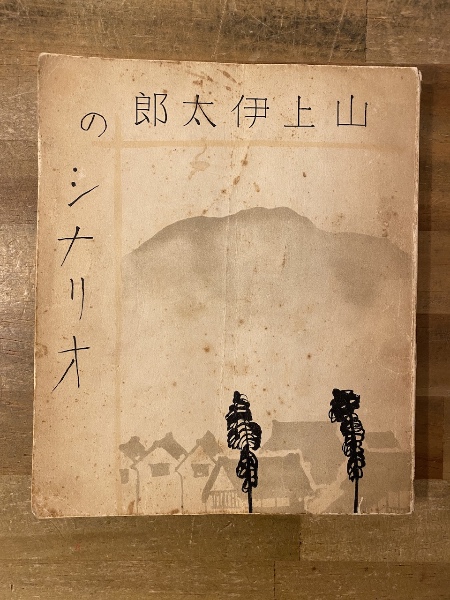 山上伊太郎
のシナリオ